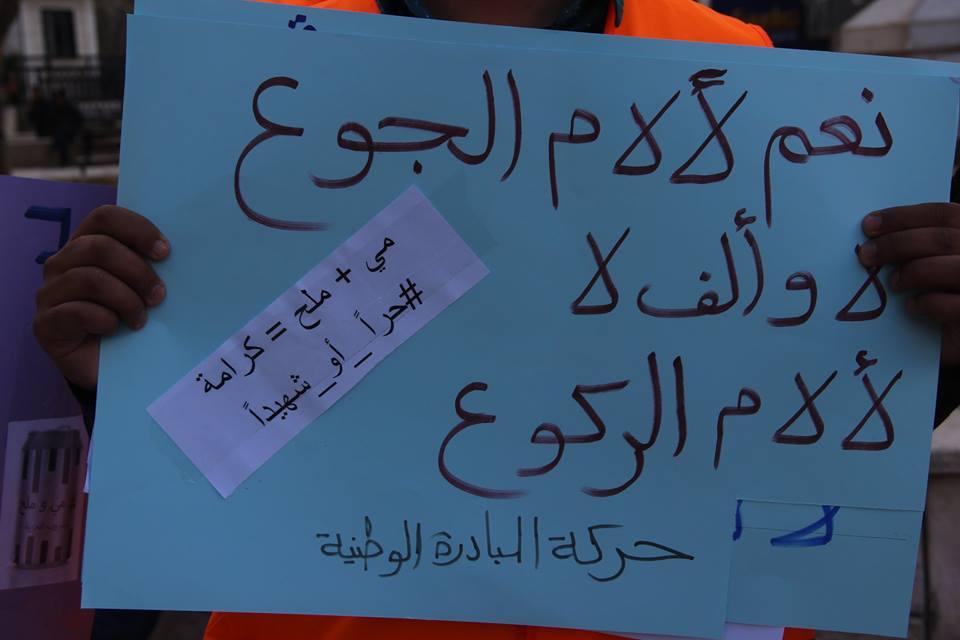 نعم لألام الجوع
لا وألف لا
لألام الركوع
مي + ملح = كرامة
#حراً_أو_شهيداً
حركة المبادرة الوطنية
لا
مي و ملح